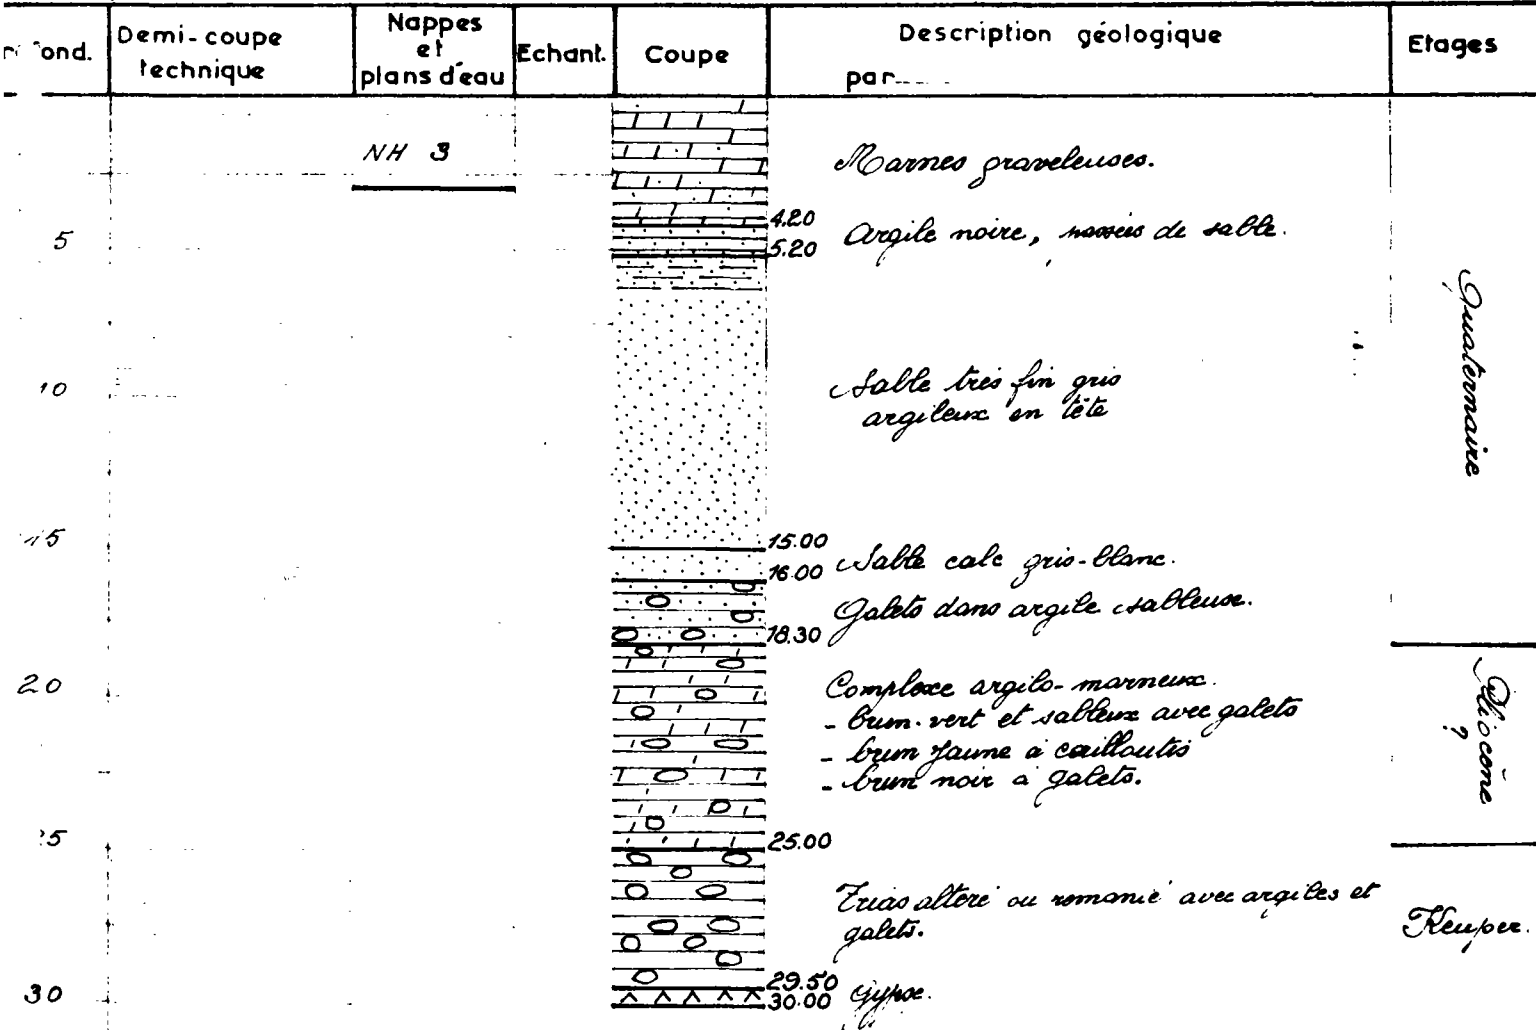 ond.
Demi-coupe
technique
Nappes
et
plans d'eau
Echant.
Coupe
Description géologique
par
Etages
NH 3
Marnes graveleuses.
4.20
Argile noire, de sable.
5
5.20
10
Sable très fin gris
argileux en tête
Quaternaire
15
15.00
Sable calc gris-blanc.
16.00
Galets dans argile sableuse.
18.30
20
Complexe argilo-marneux.
- brun-vert et sableux avec galets
- brun jaune à cailloutis
- brun noir à galets.
Pliocène
?
5
25.00
Trias altéré ou remanié avec argiles et
galets.
Keuper.
29.50
30
30.00
Gypse.